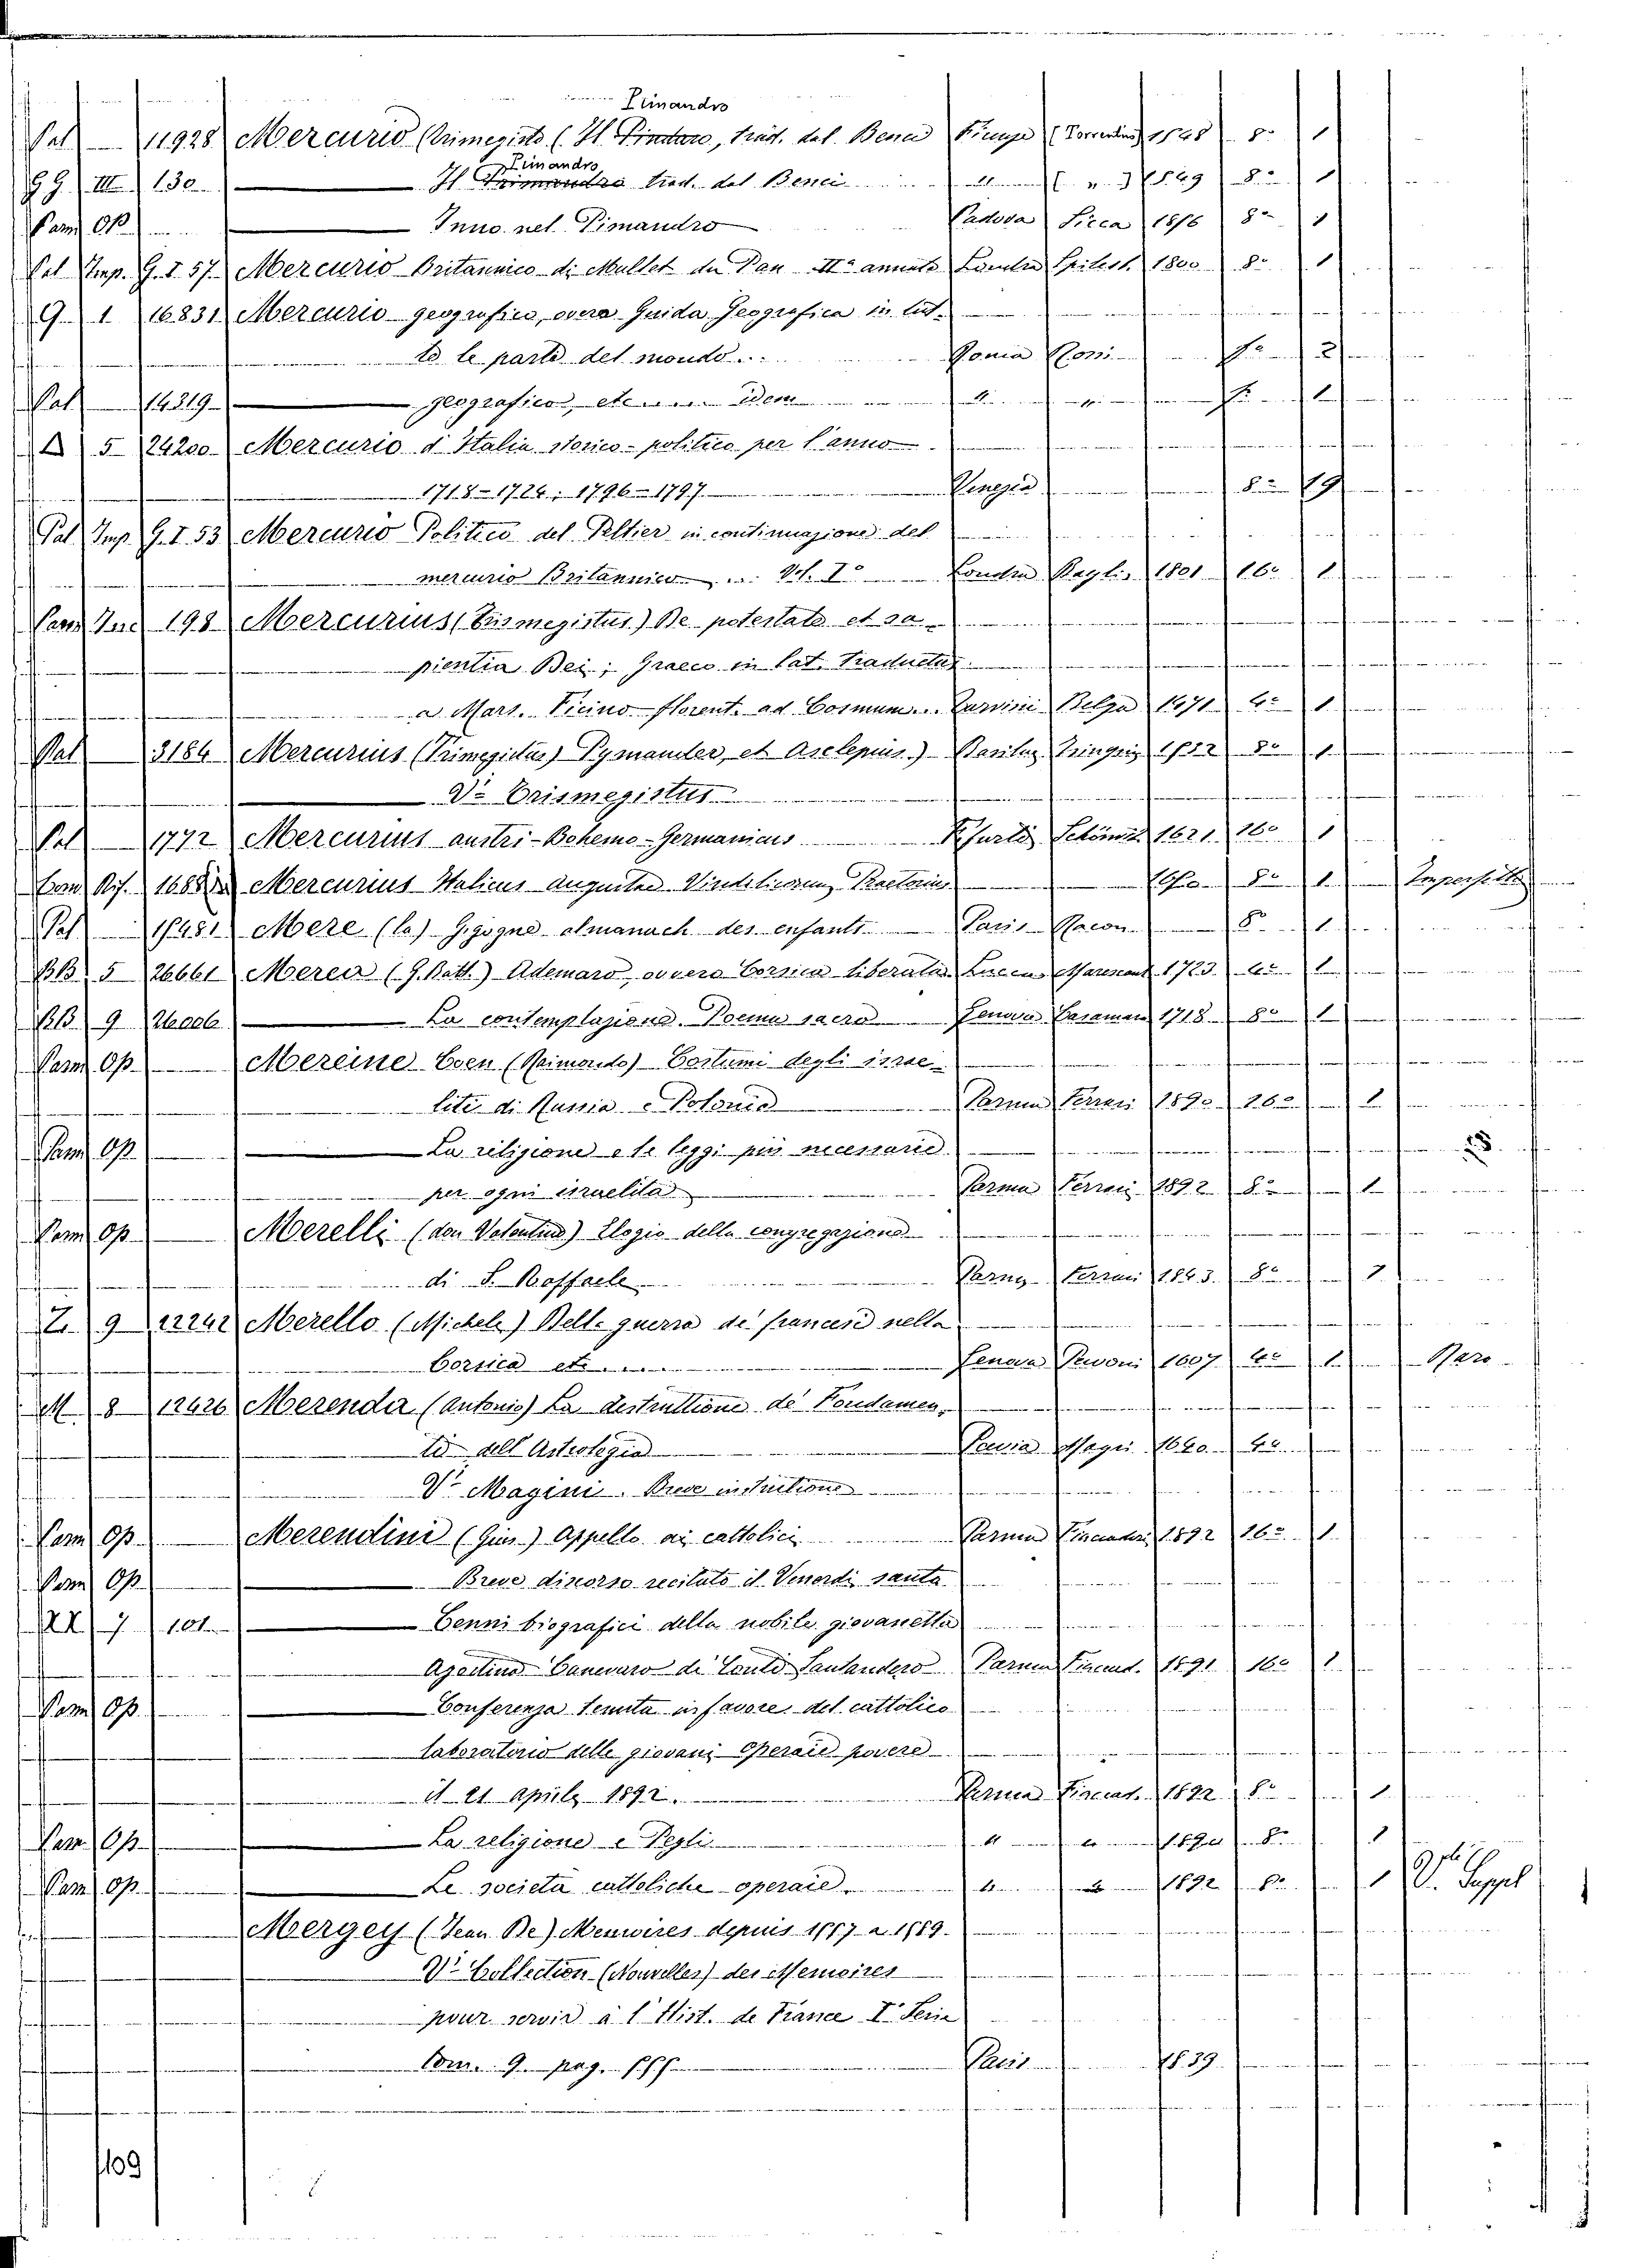 Pimandro
Pal 11928 Mercurio Trimegisto (Il Pindaro, trad. dal Benci Firenze (Torrentino) 1548 8° 1
Pimandro
GG III 130 Il Trimandro trad. dal Benci " ( " ) 1549 8° 1
Parm Op Inno nel Pimandro Padova Sicca 8° 1
Pal Imp. G. I 57 Mercurio Britannico di Mallet du Pan II° annata Londra Spilsb. 1800 8° 1
G. 1 16831 Mercurio geografico, overo Guida Geografica in tut-
te le parti del mondo... Roma Rossi f° 2
Pal 14319 geografico, etc idem " " f° 1
5 24200 Mercurio d'Italia storico-politico per l'anno
1718-1724; 1796-1797 Venezia 8° 19
Pal Imp. G. I. 53 Mercurio Politico del Peltier in continuazione del
mercurio Britannico ... Vol. I° Londra Baylis 1801 16° 1
Parm Inc 198 Mercurius (Trismegistus) De potestate et sa-
pientia Dei; Graeco in lat. traductus
a Mars. Ficino florent. ad Cosmum... Tarvisi Belga 1471 4° 1
Pal 3184 Mercurius (Trimegistus) Pymander, et Asclepius.) Basileae 1532 8° 1
V° Trismegistus
Pal 1772 Mercurius austri-Bohemo-Germanicus Schönw. 1621 16° 1
Mercurius Italicus Augustae Vindelicorum Praetorius 8° 1 Imperfetto
Pal 15481 Mere (la) Gigogne almanach des enfants Paris Marcon 8° 1
BB 5 26661 Merea (G. Batt.) Ademaro, ovvero Corsica liberata Lucca Marescand. 1723 4° 1
BB 9 26006 La contemplazione. Poema sacro Genova Casamara 1718 8° 1
Parm Op Mereine Coen (Raimondo) Costumi degli israe-
liti di Russia e Polonia Parma Ferrari 1890 16° 1
Parm Op La religione e le leggi più necessarie
per ogni israelita Parma Ferrari 1892 8° 1
Parm Op Merelli (don Valentino) Elogio della congregazione
di S. Raffaele Parma Ferrari 1863 8° 1
Z. 9 22242 Merello (Michele) Della guerra de' francesi nella
Corsica etc. Genova Pavoni 1607 4° 1 Raro
M 8 12626 Merenda (Antonio) La destruttione de' Fondamen-
ti dell'Astrologia Pavia Magri 1640 4°
V° Magini. Breve instruttione
Parm Op Merendini (Gius.) Appello ai cattolici Parma Fiaccadori 1892 16° 1
Parm Op Breve discorso recitato il Venerdi santo
7 101 Cenni biografici della nobile giovanetta
Agostina Canevaro de' Conti Santandero Parma Fiaccad. 1891 16° 1
Parm Op Conferenza tenuta in favore del cattolico
laboratorio delle giovani Operaie povere
il 21 Aprile 1892. Parma Fiaccad. 1892 8° 1
Parm Op La religione e Pegli " " 8° 1
Parm Op Le società cattoliche operaie " " 1892 8° 1 V. Suppl
Mergey (Jean De) Memoires depuis 1557 a 1589
V° Collection (Nouvelles) des Memoires
pour servir à l'Hist. de France I° Serie
Tom. 9. pag. 555 Paris 1839
109